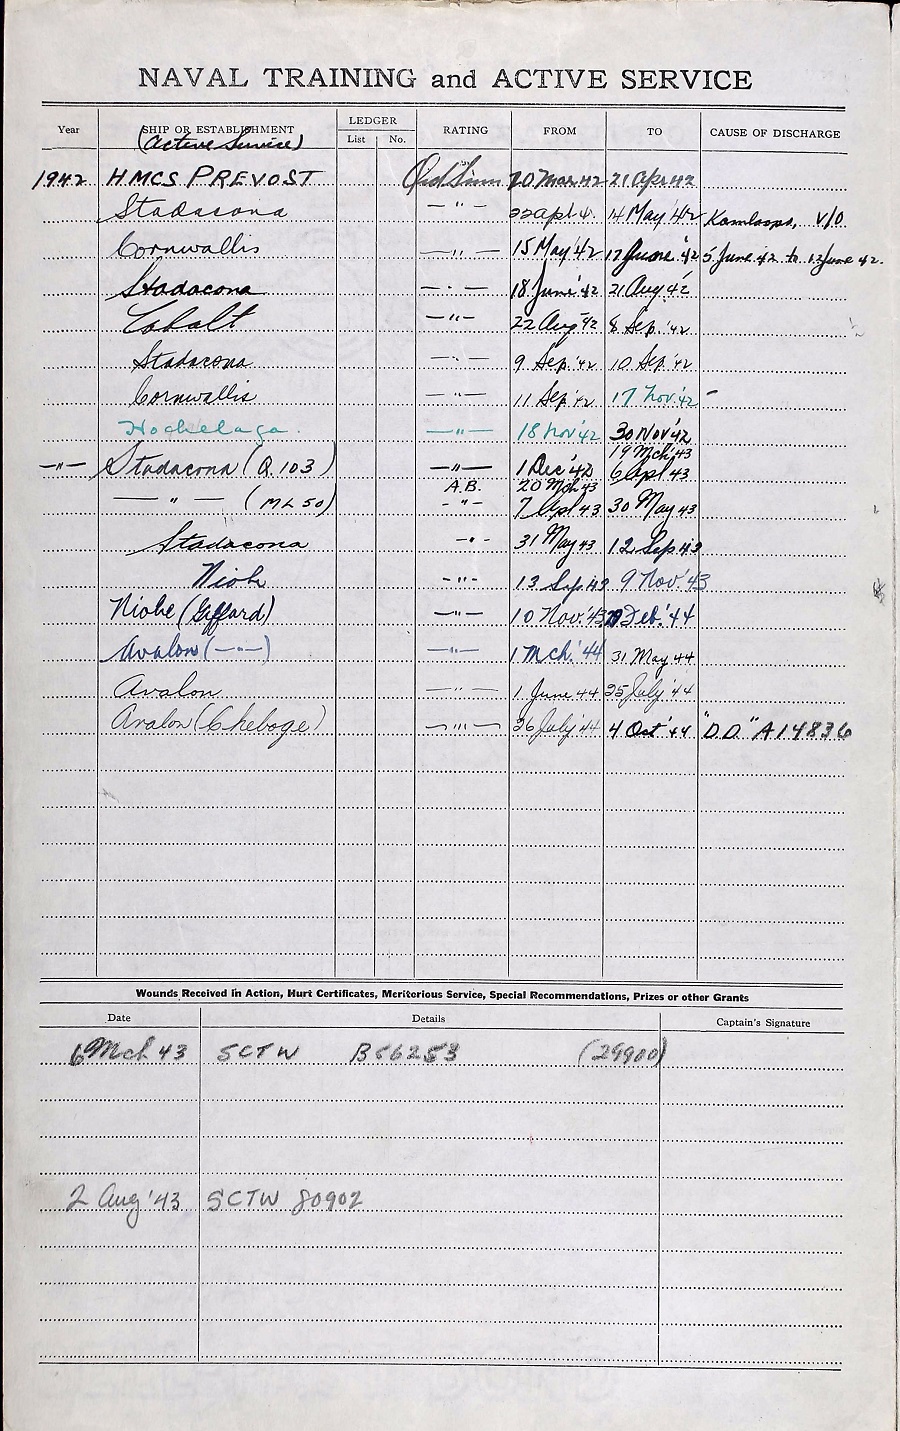 NAVAL TRAINING and ACTIVE SERVICE
Year SHIP OR ESTABLISHMENT LEDGER List No. RATING FROM TO CAUSE OF DISCHARGE
(Active Service)
1942 HMCS PREVOST 20 Mar 42 21 Apr 42
Stadacona — " — 22 Apl 4. 14 May '42 Kamloops, V/O
Cornwallis — " — 15 May '42 17 June '42 5 June 42 to 12 June 42.
Stadacona — " — 18 June '42 21 Aug 42
Cobalt — " — 22 Aug '42 8 Sep. '42
Stadacona — " — 9 Sep. '42 10 Sep. '42
Cornwallis — " — 11 Sep '42 17 Nov. '42 –
Hochelaga. — " — 18 Nov '42 30 Nov '42
19 Mch 43
— " — Stadacona (Q.103) — " — 1 Dec '42 6 Apl 43
A.B. 20 Mch 43
— " — (ML 50) - " - 7 Apl 43 30 May 43
Stadacona - " - 31 May 43 12 Sep 43
Niobe - " - 13 Sep 43 9 Nov '43
Niobe (Giffard) — " — 10 Nov. '43 Feb. '44
Avalon (— " —) — " — 1 Mch. '44 31 May 44
Avalon — " — 1 June 44 25 July '44
Avalon (Chebogue) — " — 26 July '44 4 Oct '44 "D.D." A14836
Wounds Received in Action, Hurt Certificates, Meritorious Service, Special Recommendations, Prizes or other Grants
Date Details Captain's Signature
6 Mch 43 SCTW B56253 (29900)
2 Aug '43 SCTW 80902